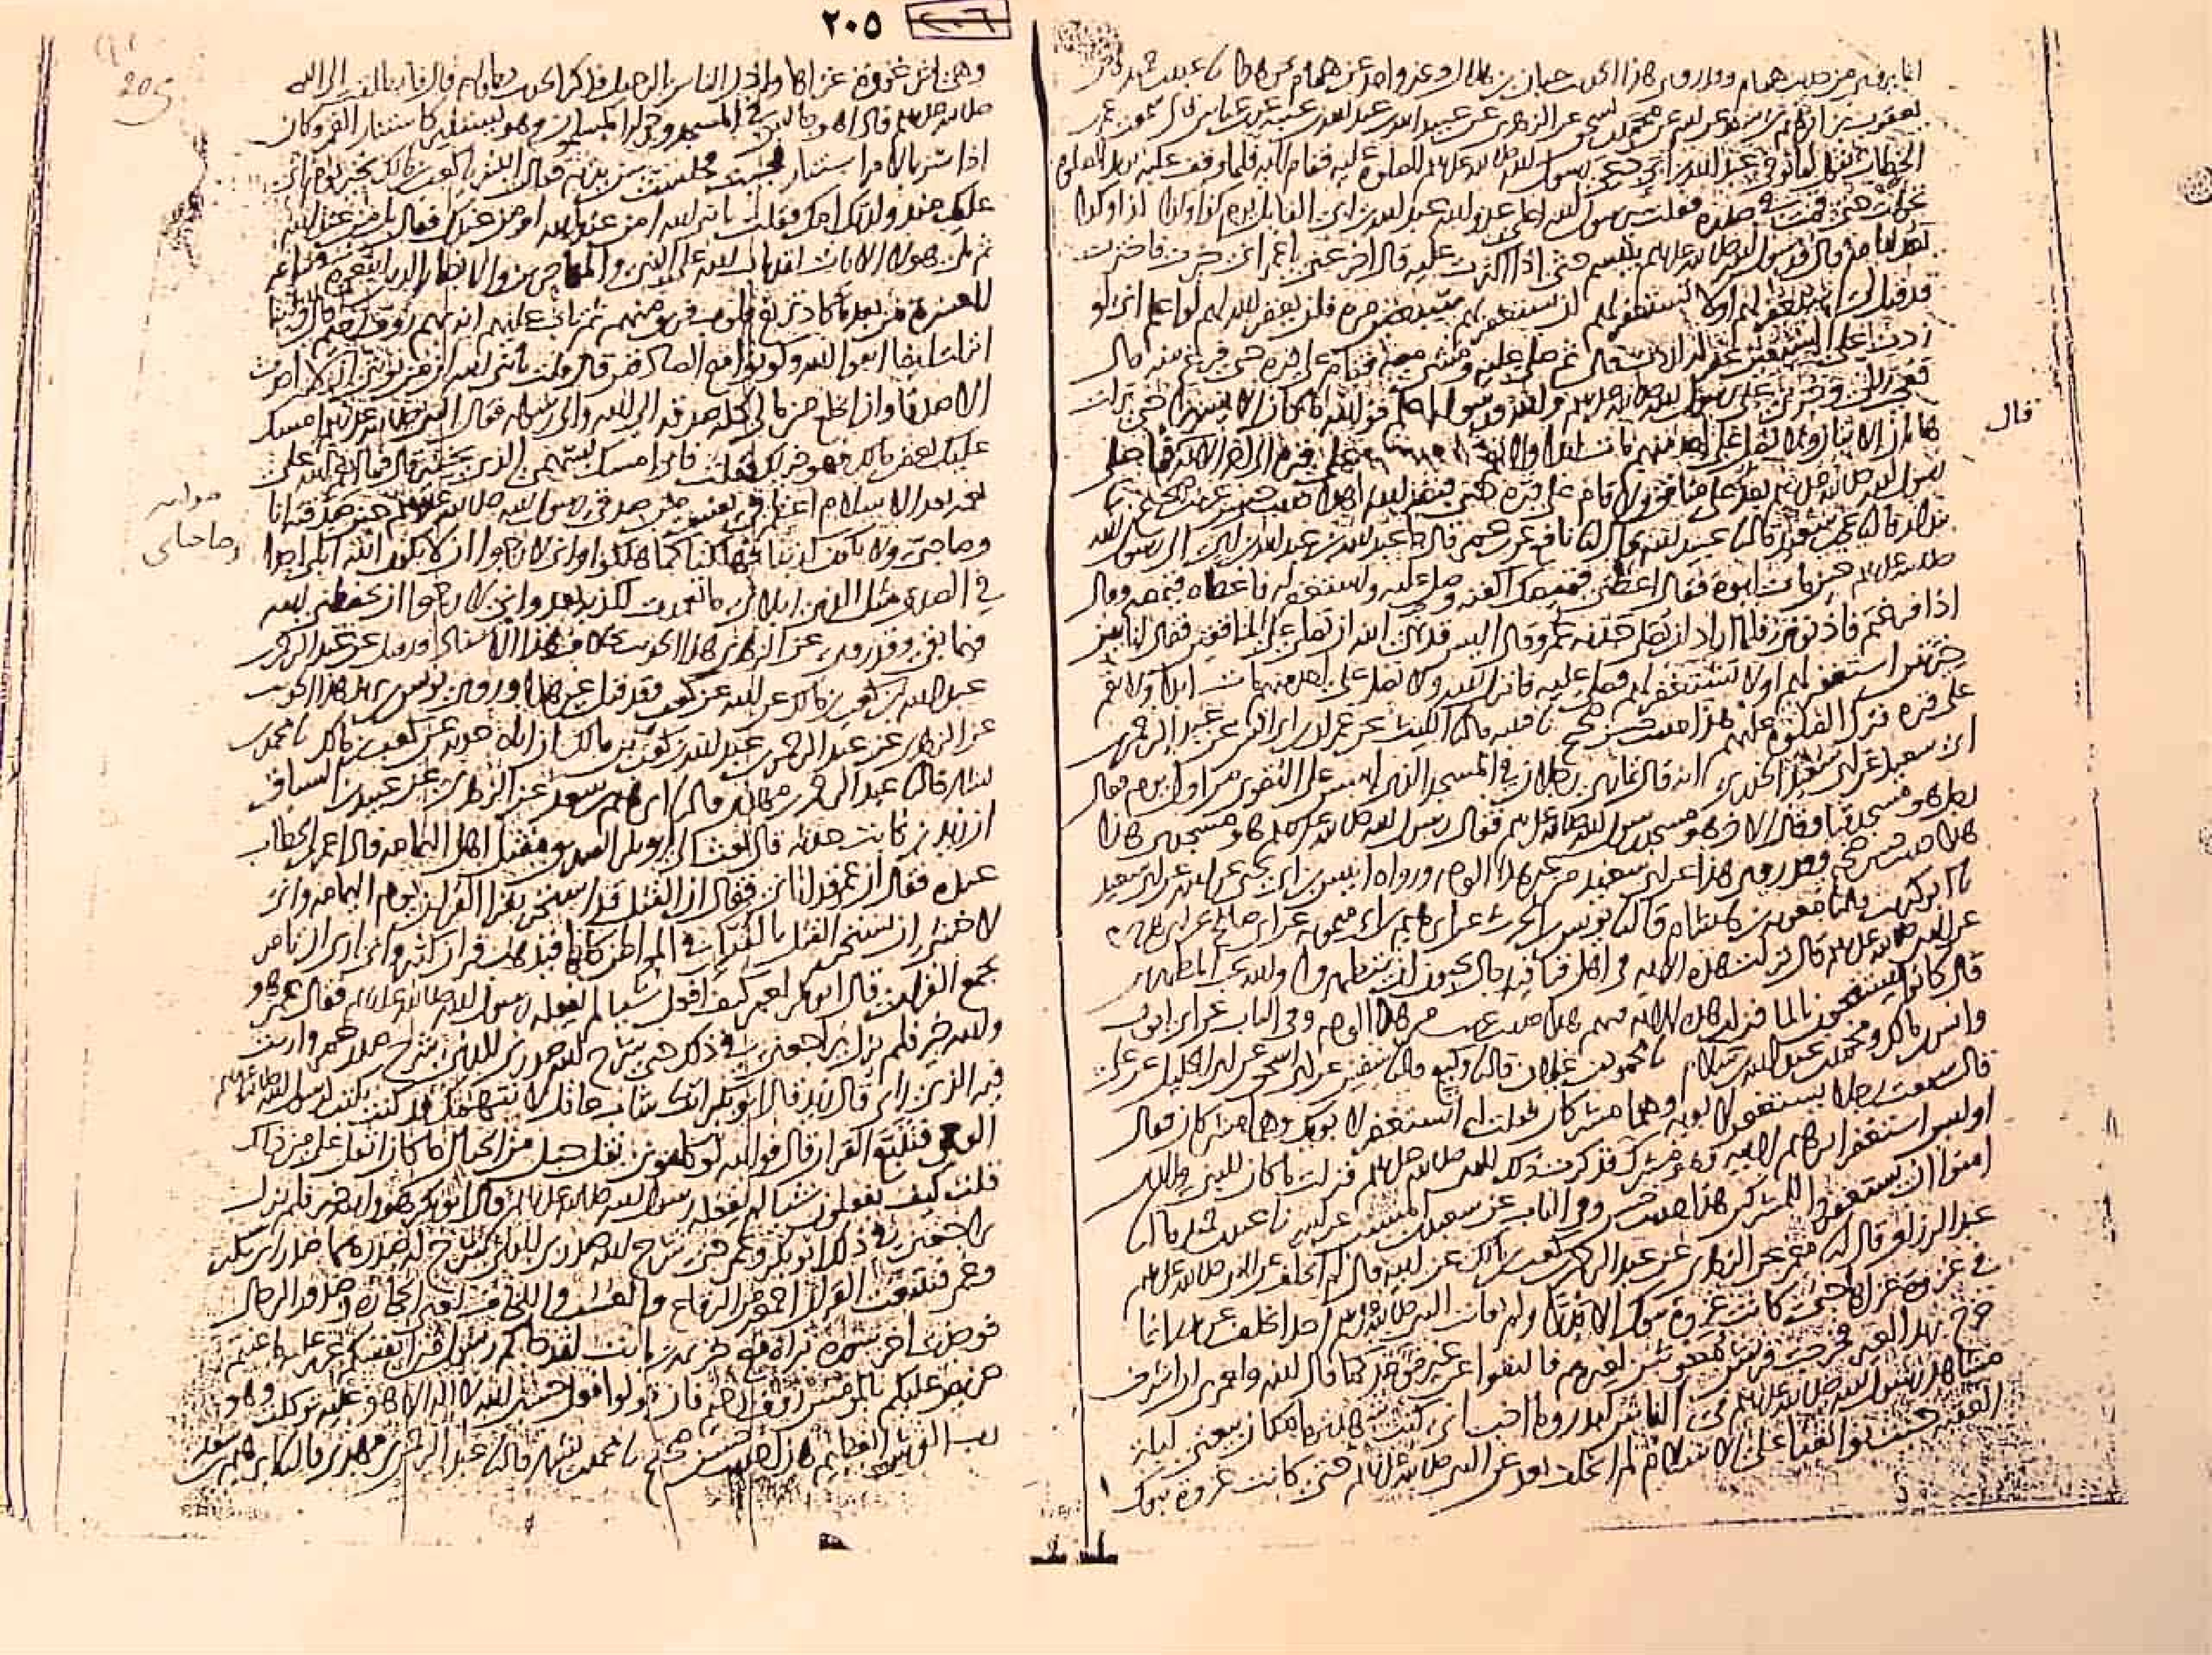 ٢٠٥
205
انما يروى من حديث همام وقد روى هذا الحديث حبان بن هلال وغير واحد عن همام نحو هذا نا عبد بن حميد نا
يعقوب بن ابرهيم بن سعد عن ابيه عن محمد بن اسحق عن الزهري عن عبيد الله بن عبد الله بن عتبة عن ابن عباس قال سمعت عمر بن
الخطاب يقول لما توفي عبد الله بن ابي دعي رسول الله صلى الله عليه وسلم للصلوة عليه فقام اليه فلما وقف عليه يريد الصلوة
تحولت حتى قمت في صدره فقلت يا رسول الله اعلى عدو الله عبد الله بن ابي القائل يوم كذا وكذا كذا وكذا
يعد ايامه قال ورسول الله صلى الله عليه وسلم يتبسم حتى اذا اكثرت عليه قال اخر عني يا عمر اني خيرت فاخترت
قد قيل لي استغفر لهم اولا تستغفر لهم ان تستغفر لهم سبعين مرة فلن يغفر الله لهم لو اعلم اني لو
زدت على السبعين غفر له لزدت قال ثم صلى عليه ومشى معه فقام على قبره حتى فرغ منه قال
فعجب لي وجرأتي على رسول الله صلى الله عليه وسلم والله ورسوله اعلم فوالله ما كان الا يسيرا حتى نزلت
هاتان الايتان ولا تصل على احد منهم مات ابدا ولا تقم على قبره الى اخر الاية قال فما صلى
قال
رسول الله صلى الله عليه وسلم بعده على منافق ولا قام على قبره حتى قبضه الله هذا حديث حسن غريب صحيح نا
بندار قال نا يحيى بن سعيد قال نا عبيد الله قال نا نافع عن ابن عمر قال جا عبد الله بن عبد الله بن ابي الى رسول الله
صلى الله عليه وسلم حين مات ابوه فقال اعطني قميصك اكفنه وصل عليه واستغفر له فاعطاه قميصه وقال
اذا فرغتم فاذنوني فلما اراد ان يصلي جذبه عمر وقال اليس قد نهى الله ان تصلي على المنافقين فقال انا بين
خيرتين استغفر لهم او لا تستغفر لهم فصلى عليه فانزل الله ولا تصل على احد منهم مات ابدا ولا تقم
على قبره فترك الصلوة عليهم هذا حديث حسن صحيح نا قتيبة قال نا الليث عن عمران بن ابي انس عن عبد الرحمن
ابن ابي سعيد عن ابي سعيد الخدري انه قال تمارى رجلان في المسجد الذي اسس على التقوى من اول يوم فقال
رجل هو مسجد قبا وقال الاخر هو مسجد رسول الله صلى الله عليه وسلم فقال رسول الله صلى الله عليه وسلم هو مسجدي هذا
هذا حديث حسن صحيح وقد روي هذا عن ابي سعيد من غير هذا الوجه ورواه انيس بن ابي يحيى عن ابيه عن ابي سعيد
نا ابو كريب نا معوية بن هشام قال نا يونس بن الحرث عن ابرهيم بن ابي ميمونة عن ابي صالح عن ابي هريرة
عن النبي صلى الله عليه وسلم قال نزلت هذه الاية في اهل قبا فيه رجال يحبون ان يتطهروا والله يحب المطهرين
قال كانوا يستنجون بالما فنزلت هذه الاية فيهم هذا حديث غريب من هذا الوجه وفي الباب عن ابي ايوب
وانس بن مالك ومحمد بن عبد الله بن سلام نا محمود بن غيلان قال نا وكيع قال نا سفين عن ابي اسحق عن ابي الخليل عن علي
قال سمعت رجلا يستغفر لابويه وهما مشركان فقلت له اتستغفر لابويك وهما مشركان فقال
اوليس استغفر ابرهيم لابيه وهو مشرك فذكرت ذلك للنبي صلى الله عليه وسلم فنزلت ما كان للنبي والذين
امنوا ان يستغفروا للمشركين هذا حديث حسن وفي الباب عن سعيد بن المسيب عن ابيه نا عبد بن حميد قال نا
عبد الرزاق قال نا معمر عن الزهري عن عبد الرحمن بن كعب بن مالك عن ابيه قال لم اتخلف عن النبي صلى الله عليه وسلم
في غزوة غزاها حتى كانت غزوة تبوك الا بدرا ولم يعاتب النبي صلى الله عليه وسلم احدا تخلف عن بدر انما
خرج يريد العير فخرجت قريش مغوثين لعيرهم فالتقوا عن غير موعد كما قال الله ولعمري ان اشرف
مشاهد رسول الله صلى الله عليه وسلم في الناس لبدر وما احب اني كنت شهدتها مكان بيعتي ليلة
العقبة حيث تواثقنا على الاسلام ثم لم اتخلف بعد عن النبي صلى الله عليه وسلم حتى كانت غزوة تبوك
وهي اخر غزوة غزاها واذن الناس بالرحيل فذكر الحديث بطوله قال فانطلقت الى النبي
صلى الله عليه وسلم فاذا هو جالس في المسجد وحوله المسلمون وهو يستنير كاستنارة القمر وكان
اذا سر بالامر استنار فجئت فجلست بين يديه فقال ابشر يا كعب بن مالك بخير يوم اتى
عليك منذ ولدتك امك فقلت يا نبي الله امن عند الله ام من عندك فقال بل من عند الله
ثم تلا هولا الايات لقد تاب الله على النبي والمهاجرين والانصار الذين اتبعوه في ساعة
العسرة من بعد ما كاد تزيغ قلوب فريق منهم ثم تاب عليهم انه بهم رؤف رحيم قال وفينا
انزلت ايضا اتقوا الله وكونوا مع الصادقين قال قلت يا نبي الله ان من توبتي ان لا احدث
الا صدقا وان انخلع من مالي كله صدقة الى الله والى رسوله فقال النبي صلى الله عليه وسلم امسك
عليك بعض مالك فهو خير لك فقلت فاني امسك سهمي الذي بخيبر قال فما انعم الله علي
نعمة بعد الاسلام اعظم في نفسي من صدقي رسول الله صلى الله عليه وسلم حين صدقته انا
وصاحباي ولا نكون كذبنا فهلكنا كما هلكوا واني لارجو ان لا يكون الله ابلى احدا
وصاحباي
في الصدق مثل الذي ابلاني ما تعمدت لكذبة بعد واني لارجو ان يحفظني الله
فيما بقي وقد روي عن الزهري هذا الحديث بخلاف هذا الاسناد وقد قيل عن عبد الرحمن بن
عبد الله بن كعب بن مالك عن ابيه عن كعب وقد قيل غير هذا وروى يونس بن يزيد هذا الحديث
عن الزهري عن عبد الرحمن بن عبد الله بن كعب بن مالك ان اباه حدثه عن كعب بن مالك نا محمد بن
بشار قال نا عبد الرحمن بن مهدي قال نا ابرهيم بن سعد عن الزهري عن عبيد بن السباق
ان زيد بن ثابت حدثه قال بعث الي ابو بكر الصديق مقتل اهل اليمامة فاذا عمر بن الخطاب
عنده فقال ان عمر قد اتاني فقال ان القتل قد استحر بقرا القران يوم اليمامة واني
لاخشى ان يستحر القتل بالقرا في المواطن كلها فيذهب قران كثير واني ارى ان تامر
بجمع القران قال ابو بكر لعمر كيف افعل شيا لم يفعله رسول الله صلى الله عليه وسلم فقال عمر هو
والله خير فلم يزل يراجعني في ذلك حتى شرح الله صدري للذي شرح له صدر عمر ورايت
فيه الذي راى قال زيد قال ابو بكر انك شاب عاقل لا نتهمك قد كنت تكتب لرسول الله صلى الله عليه وسلم
الوحي فتتبع القران قال فوالله لو كلفوني نقل جبل من الجبال ما كان اثقل علي من ذلك
قلت كيف تفعلون شيا لم يفعله رسول الله صلى الله عليه وسلم قال ابو بكر هو والله خير فلم يزل
يراجعني في ذلك ابو بكر وعمر حتى شرح الله صدري للذي شرح له صدرهما صدر ابي بكر
وعمر فتتبعت القران اجمعه من الرقاع والعسب واللخاف يعني الحجارة وصدور الرجال
فوجدت اخر سورة براة مع خزيمة بن ثابت لقد جاكم رسول من انفسكم عزيز عليه ما عنتم
حريص عليكم بالمومنين رؤف رحيم فان تولوا فقل حسبي الله لا اله الا هو عليه توكلت وهو
رب العرش العظيم هذا حديث حسن صحيح نا محمد بن بشار قال نا عبد الرحمن بن مهدي قال نا ابرهيم بن سعد